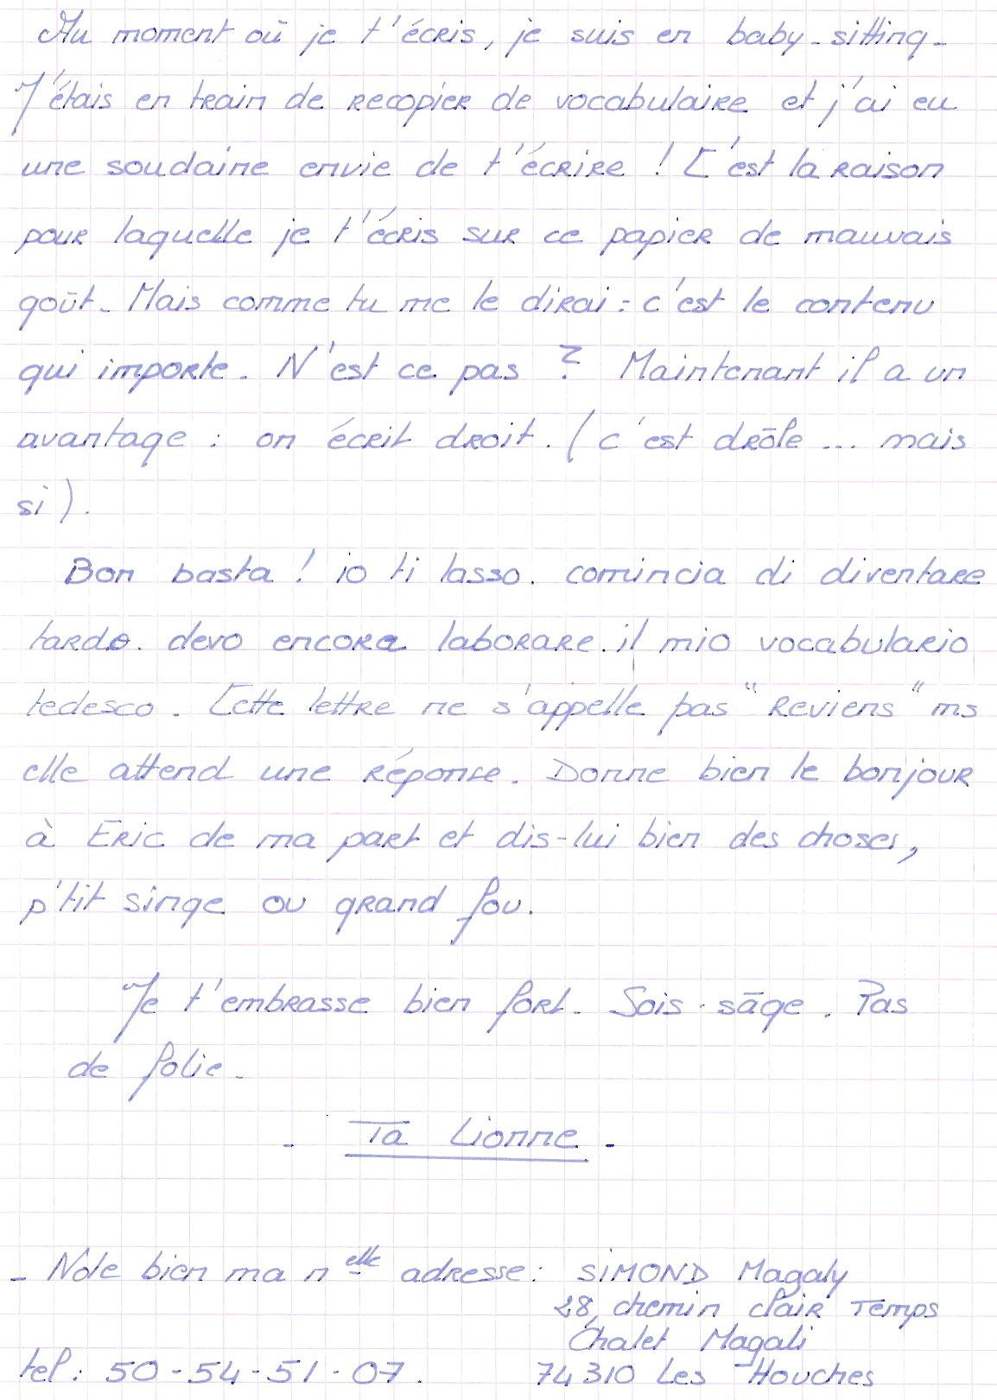 Au moment où je t'écris, je suis en baby-sitting.
J'étais en train de recopier de vocabulaire et j'ai eu
une soudaine envie de t'écrire ! C'est la raison
pour laquelle je t'écris sur ce papier de mauvais
goût. Mais comme tu me le dirai : c'est le contenu
qui importe. N'est ce pas ? Maintenant il a un
avantage : on écrit droit. (c'est drôle ... mais
si).
Bon basta ! io ti lasso. comincia di diventare
tardo. devo encora laborare. il mio vocabulario
tedesco. Cette lettre ne s'appelle pas "Reviens" ms
elle attend une réponse. Donne bien le bonjour
à Eric de ma part et dis-lui bien des choses,
p'tit singe ou grand fou.
Je t'embrasse bien fort. Sois sâge. Pas
de folie.
- Ta Lionne -
- Note bien ma nelle adresse : SIMOND Magaly
28, chemin clair Temps
Chalet Magali
tel : 50-54-51-07. 74310 Les Houches